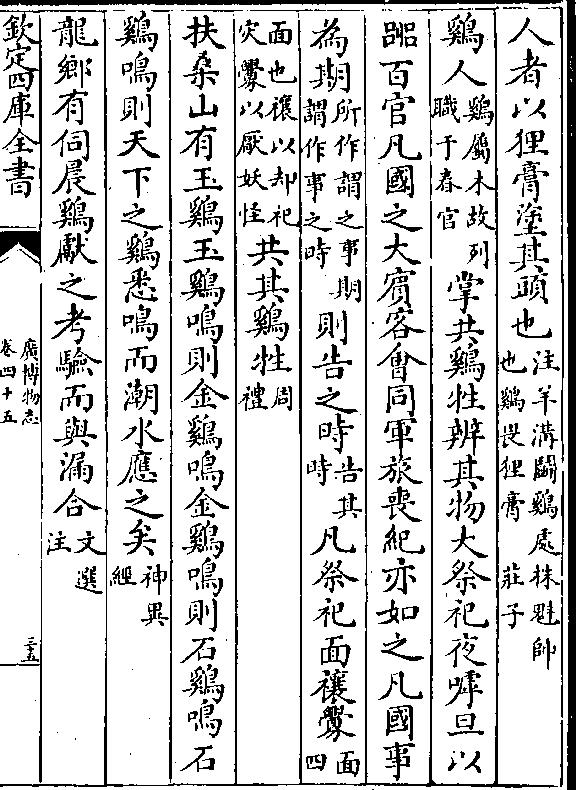 人者以狸膏塗其頭也注羊溝鬭鷄處株魁帥也鷄畏狸膏 莊子
鷄人鷄屬木故列職于春官掌共鷄牲辨其物大祭祀夜嘑旦以
嘂百官凡國之大賓客會同軍旅喪紀亦如之凡國事
為期所作謂之事期謂作事之時則告之時告其時凡祭祀面禳釁面四
面也禳以却祀灾釁以厭妖怪共其鷄牲周禮
扶桑山有玉鷄玉鷄鳴則金鷄鳴金鷄鳴則石鷄鳴石
鷄鳴則天下之鷄悉鳴而潮水應之矣神異經
龍鄉有伺晨鷄獻之考驗而與漏合文選注
欽定四庫全書
廣博物志
卷四十五
三五